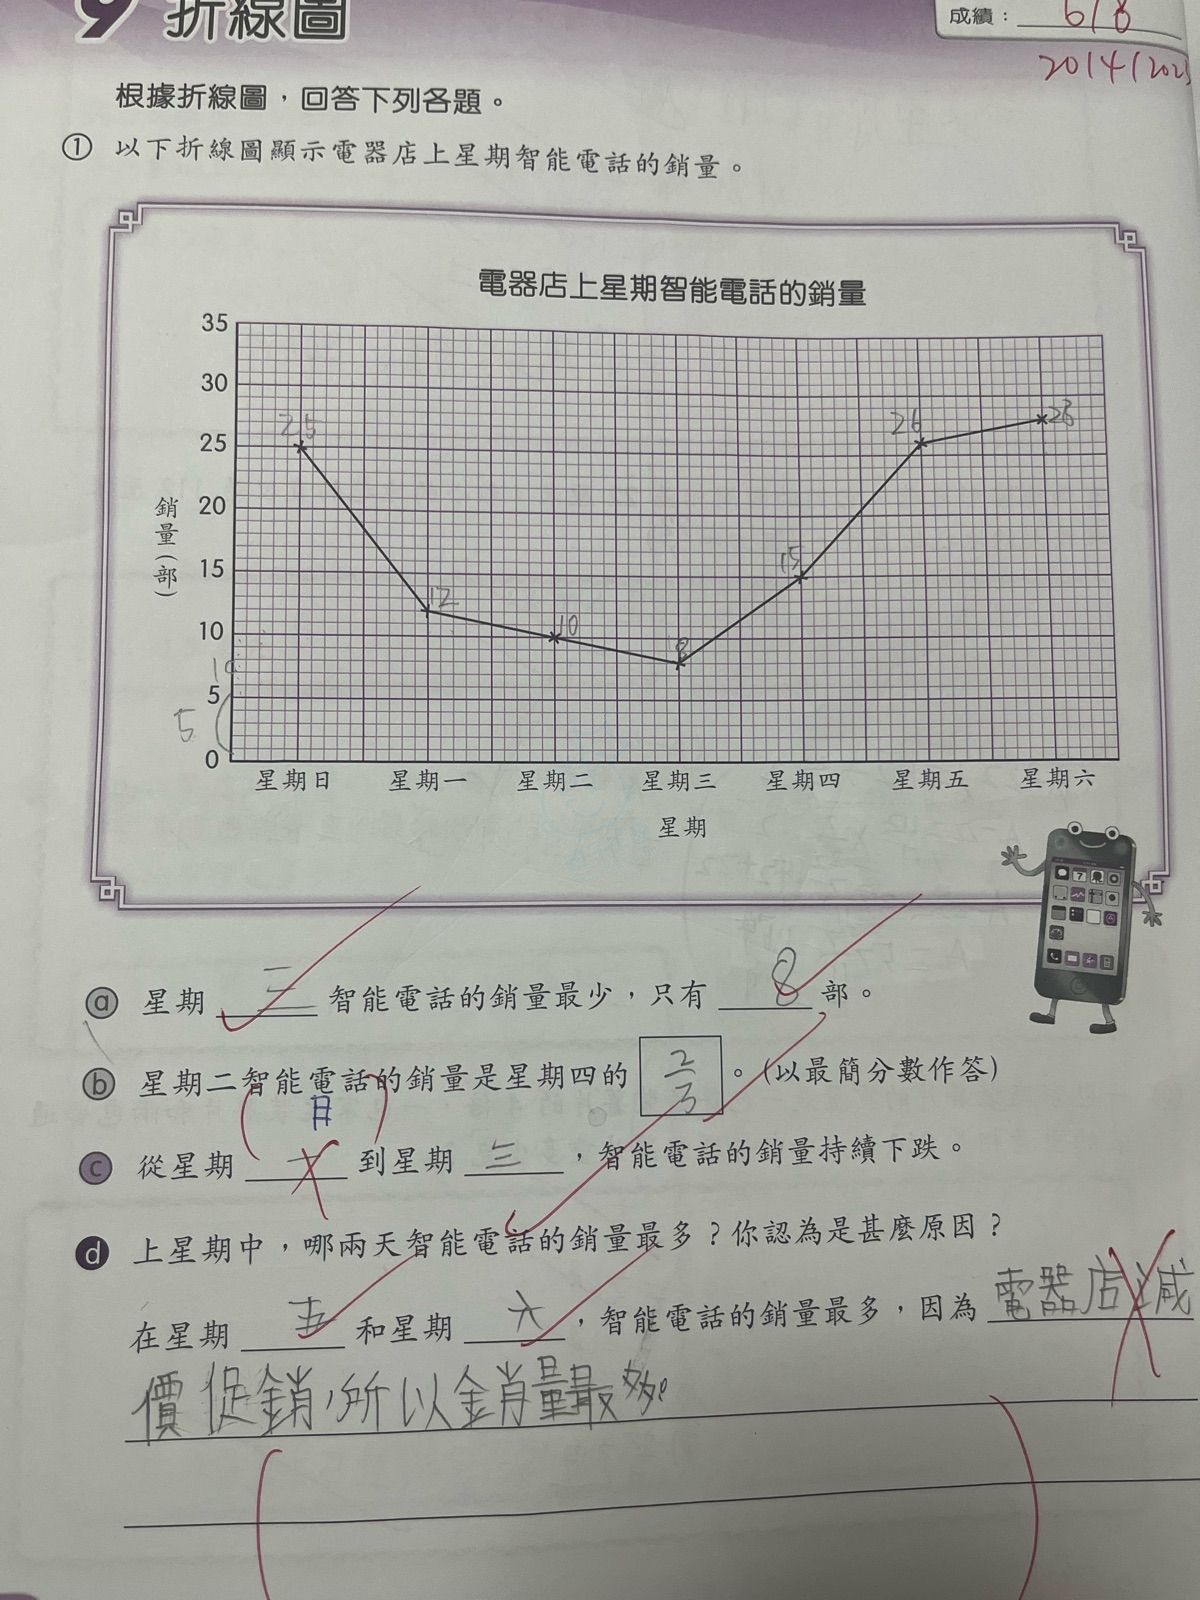 9 折線圖
成績：6/8
20/4/202
根據折線圖，回答下列各題。
① 以下折線圖顯示電器店上星期智能電話的銷量。
電器店上星期智能電話的銷量
銷量(部)
35
30
25
20
15
10
5
0
25
12
10
8
15
26
28
10
5
星期日 星期一 星期二 星期三 星期四 星期五 星期六
星期
a 星期 三 智能電話的銷量最少，只有 8 部。
b 星期二智能電話的銷量是星期四的 2/3 。(以最簡分數作答)
日
c 從星期 一 到星期 三 ，智能電話的銷量持續下跌。
d 上星期中，哪兩天智能電話的銷量最多？你認為是甚麼原因？
在星期 五 和星期 六 ，智能電話的銷量最多，因為 電器店減
價促銷，所以銷量最多。